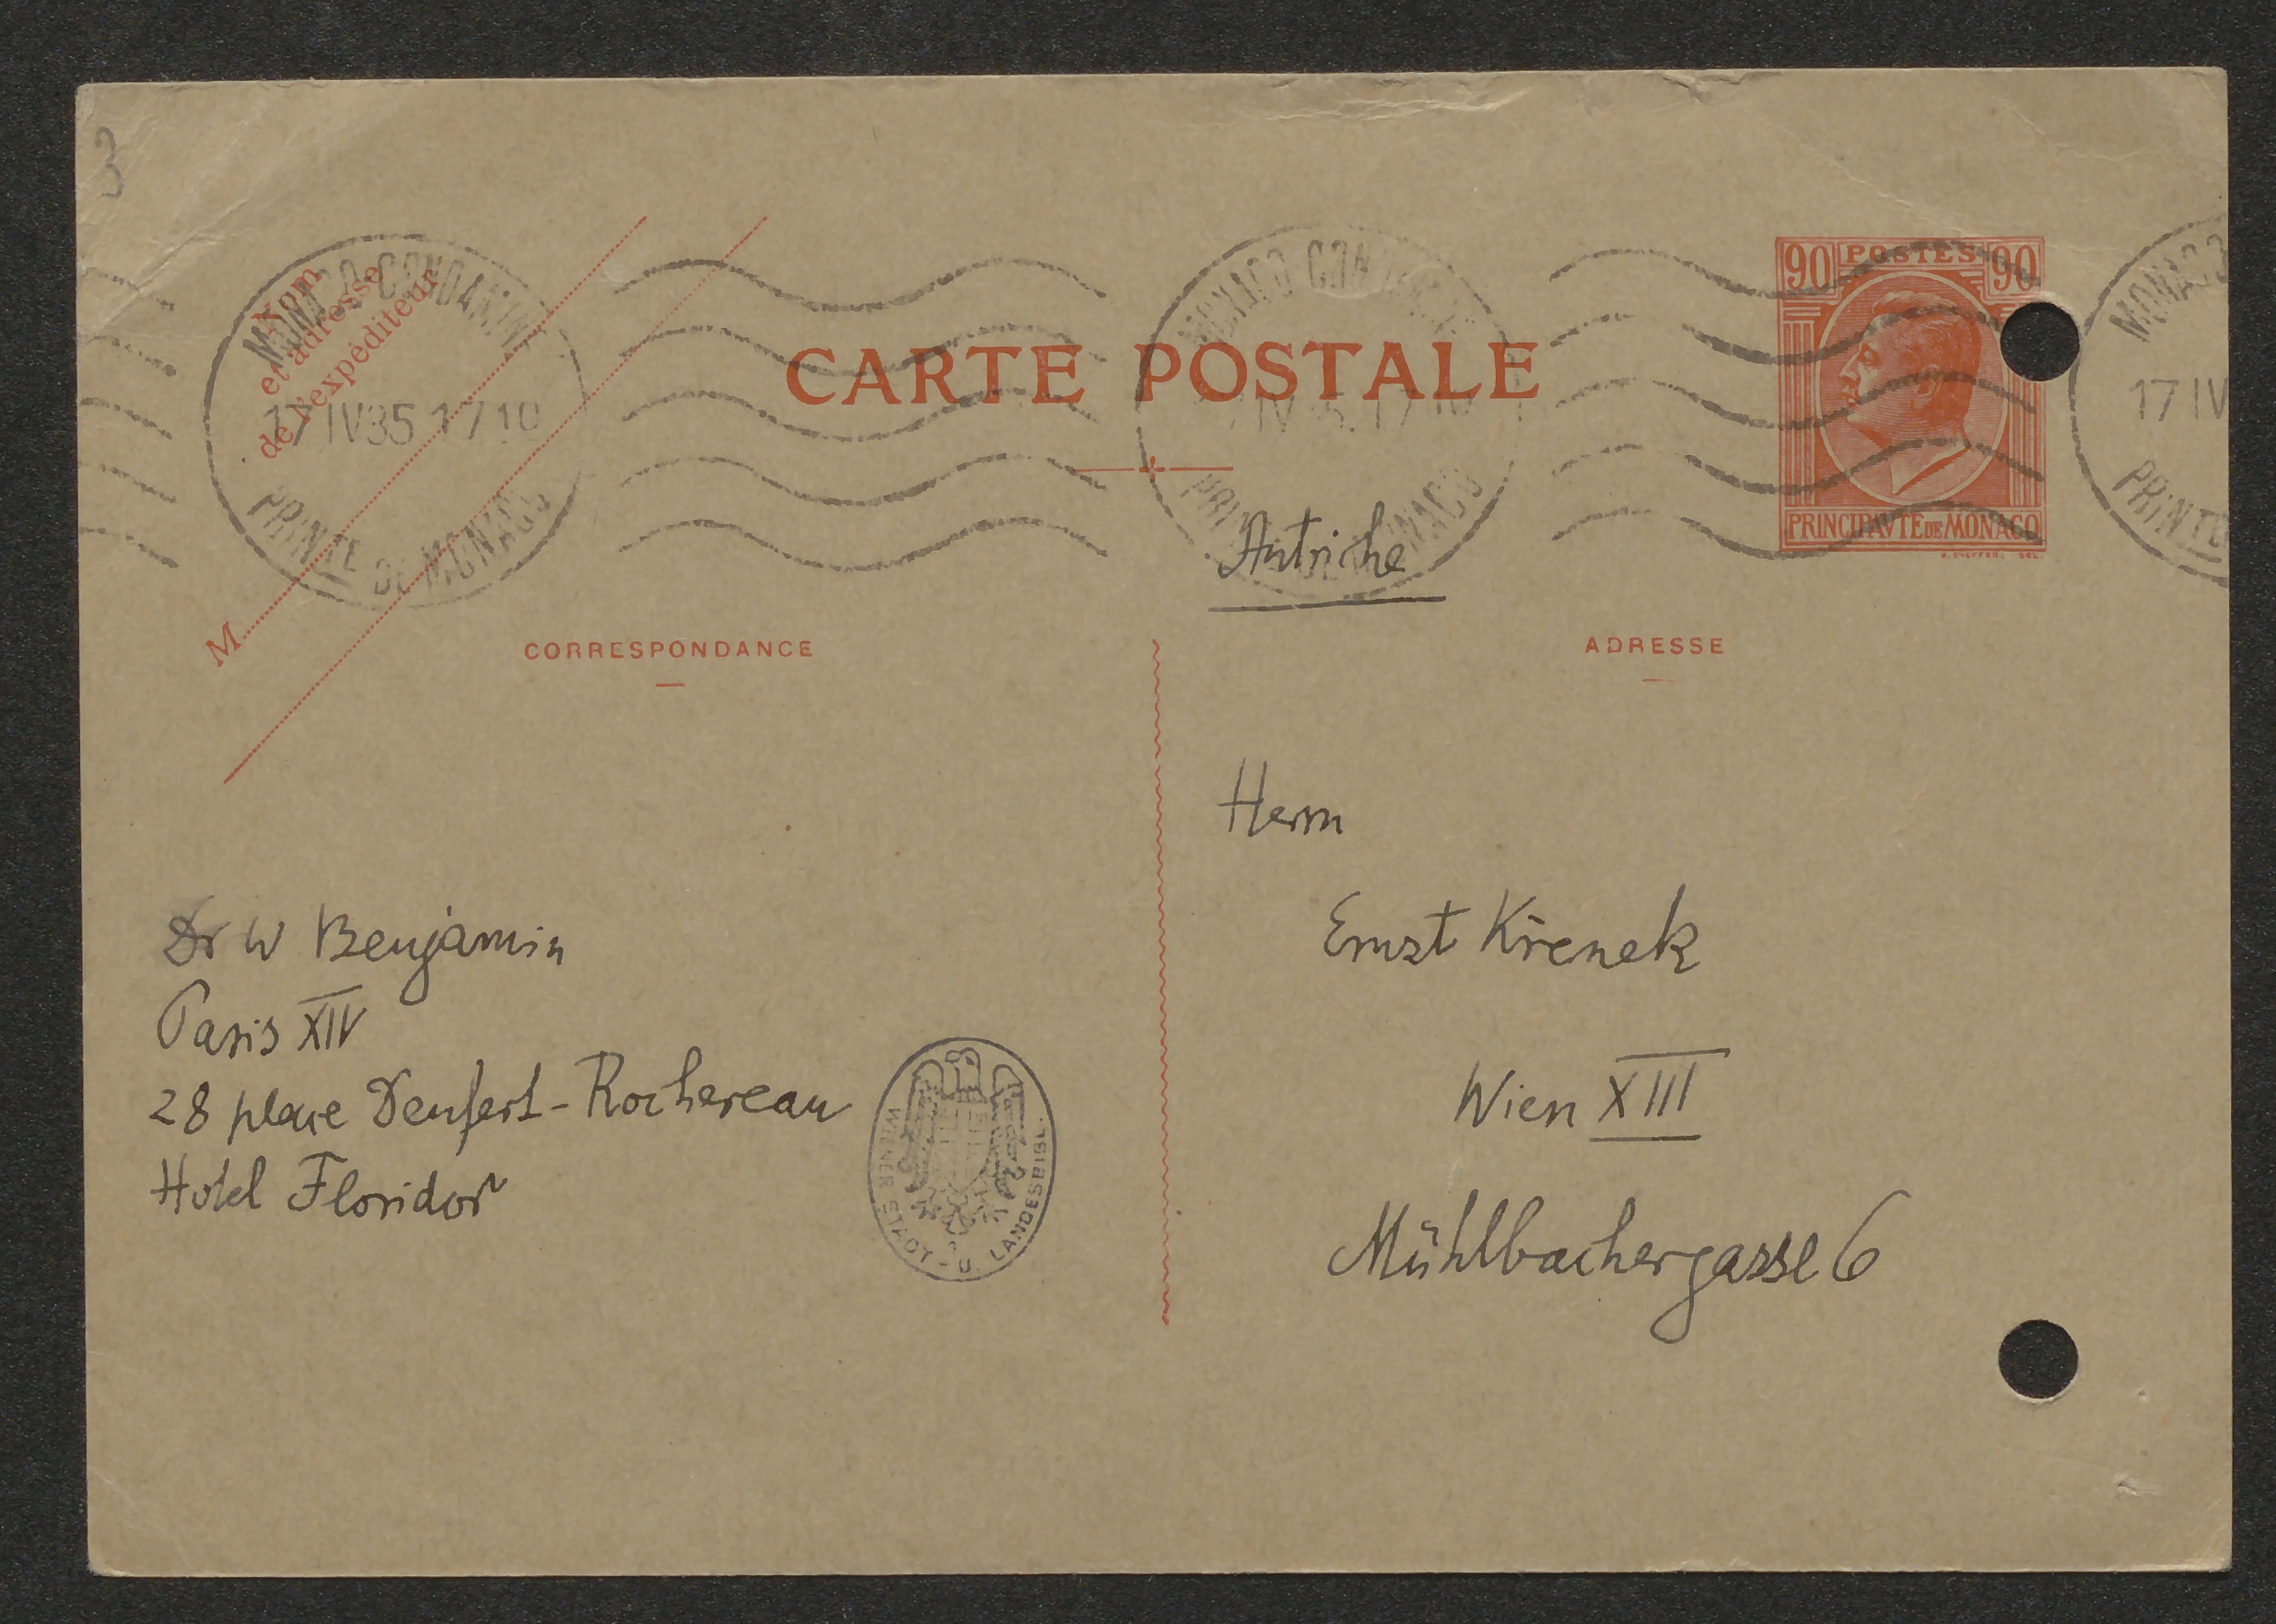 3
Nom
et adresse
de l'expéditeur
M
MONACO-CONDAMINE
17 IV 35 17 10
PRINTE DE MONACO
CARTE POSTALE
MONACO
PRINTE DE MONACO
90 POSTES 90
PRINCIPAVTE DE MONACO
MONACO
17 IV
PRINTE
Autriche
CORRESPONDANCE
ADRESSE
Herrn
Ernst Křenek
Wien XIII
Mühlbachergasse 6
Dr W Benjamin
Paris XIV
28 place Denfert-Rochereau
Hotel Floridor
WIENER STADT- U. LANDESBIBL.